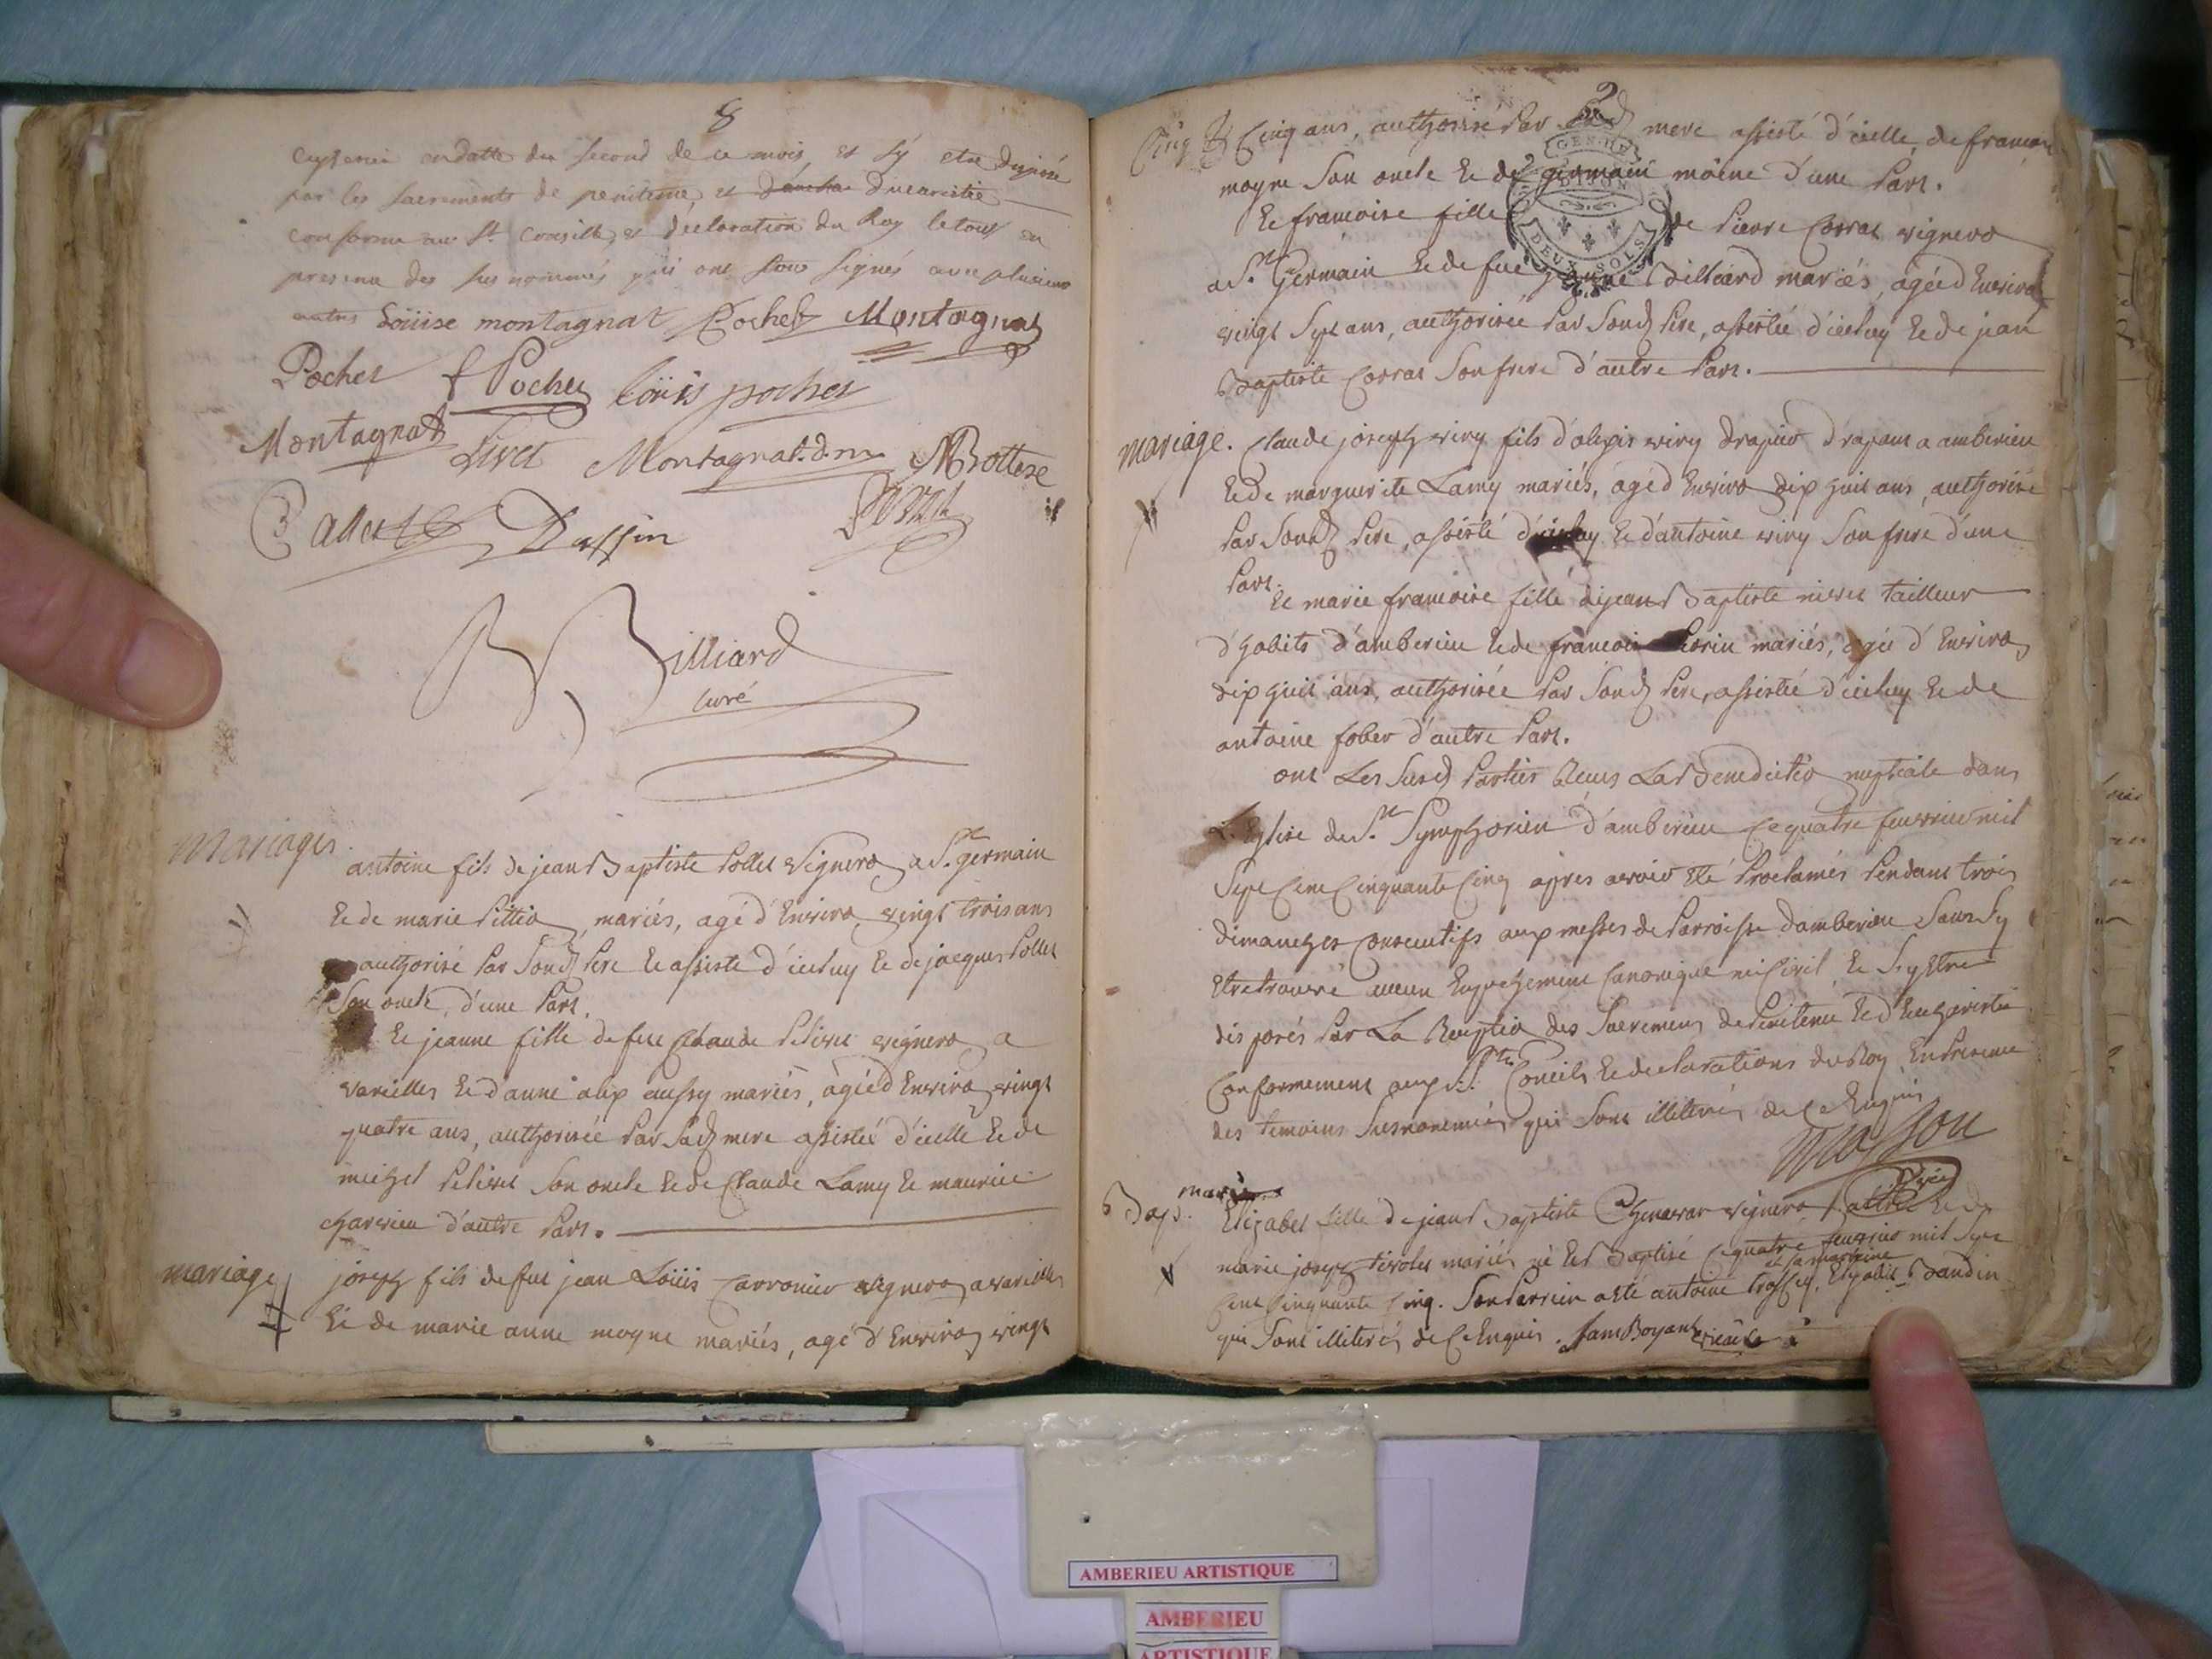 8
en datte du second de ce mois, et s'y etre disposé
par les sacrements de penitence, et d'eucaristie
conforme aux Sts conciles, et déclaration du Roy le tout en
presence des susnommés qui ont signés avec plusieurs
autres Loüise montagnat Pochet Montagnat
Pochet f Pochet loüis pochet
Montagnat Livet Montagnat d.m. Bottexe
Dassin
Billiard
curé
Mariages
antoine fils de jean Baptiste Pollet vigneron a St. germain
Et de marie Pittion, mariés, agé d'Environ vingt trois ans
authorisé Par Sond Pere Et assisté d'iceluy Et de jacques Pollet
Son oncle, d'une Part.
Et jeanne fille de feu Claude Pelivet vigneron a
vareilles Et d'anne alix aussy mariés, agée d'Environ vingt
quatre ans, authorisée Par Sad mere assistée d'icelle Et de
michel Pelivet Son oncle Et de Claude Lamy Et maurice
charvieu d'autre Part.
mariage
joseph fils de feu jean Loüis Carronier vigneron a vareilles
Et de marie anne moyne mariés, agé d'Environ vingt
Cinq Cinq ans, authorisé Par Sad mere assisté d'icelle, de francois
moyne Son oncle Et de germain moine d'une Part.
GEN. DE DIJON
DEUX SOLS
Et francoise fille de Pierre Corrat vigneron
a St. Germain Et de feue jeanne Billiard mariés, agée d'Environ
vingt Sept ans, authorisée Par Sond Pere, assistée d'iceluy Et de jean
Baptiste Corrat Son frere d'autre Part.
mariage.
Claude joseph viny fils d'alexis viny drapier drapant a amberieu
Et de marguerite Lamy mariés, agé d'Environ dix huit ans, authorisé
Par Sond Pere, assisté d'iceluy Et d'antoine viny Son frere d'une
Part.
Et marie francoise fille de jean Baptiste nivet tailleur
d'habits d'amberieu Et de francoise Morin mariés, agée d'Environ
dix huit ans, authorisée Par Sond Pere, assistée d'iceluy Et de
antoine fober d'autre Part.
ont Les Susd Parties Reçus La Benediction nuptiale dans
L'Eglise de St. Symphorien d'amberieu Ce quatre fevrier mil
Sept Cent Cinquante Cinq apres avoir Eté Proclamés Pendant trois
dimanches Consecutifs aux messes de Parroisse d'amberieu Sans S'y
Etre trouvé aucun Empechement Canonique ni Civil, Et S'y Etre
disposés Par La Reception des Sacremens de Penitence Et d'Eucharistie
Conformement aux Sts. Conciles Et declarations du Roy, En Presence
des temoins Susnommés qui Sont illiterés de Ce Enquis
Masson
vicre
Bap.
Elizabet fille de jean Baptiste Chenavar vigneron Et de
marie joseph tivolet mariés né Et Baptisé Ce quatre fevrier mil Sept
et sa marreine
Cent Cinquante Cinq. Son Parrein a eté antoine Elizabet Baudin
qui Sont illiterés de Ce Enquis. Jamboyant vicaire
AMBERIEU ARTISTIQUE
AMBERIEU
ARTISTIQUE